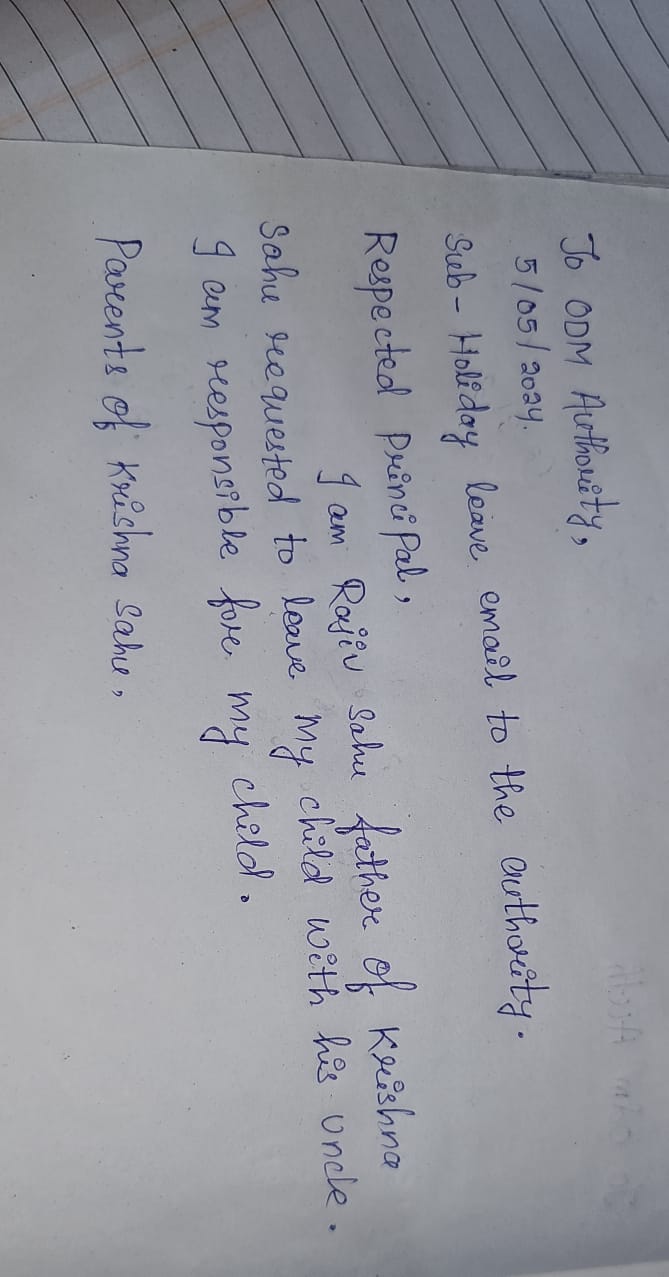 To ODM Authority,
5/05/2024.
Sub - Holiday leave email to the authority.
Respected Principal,
I am Rajiv Sahu father of Krishna
Sahu requested to leave my child with his uncle.
I am responsible for my child.
Parents of Krishna Sahu,